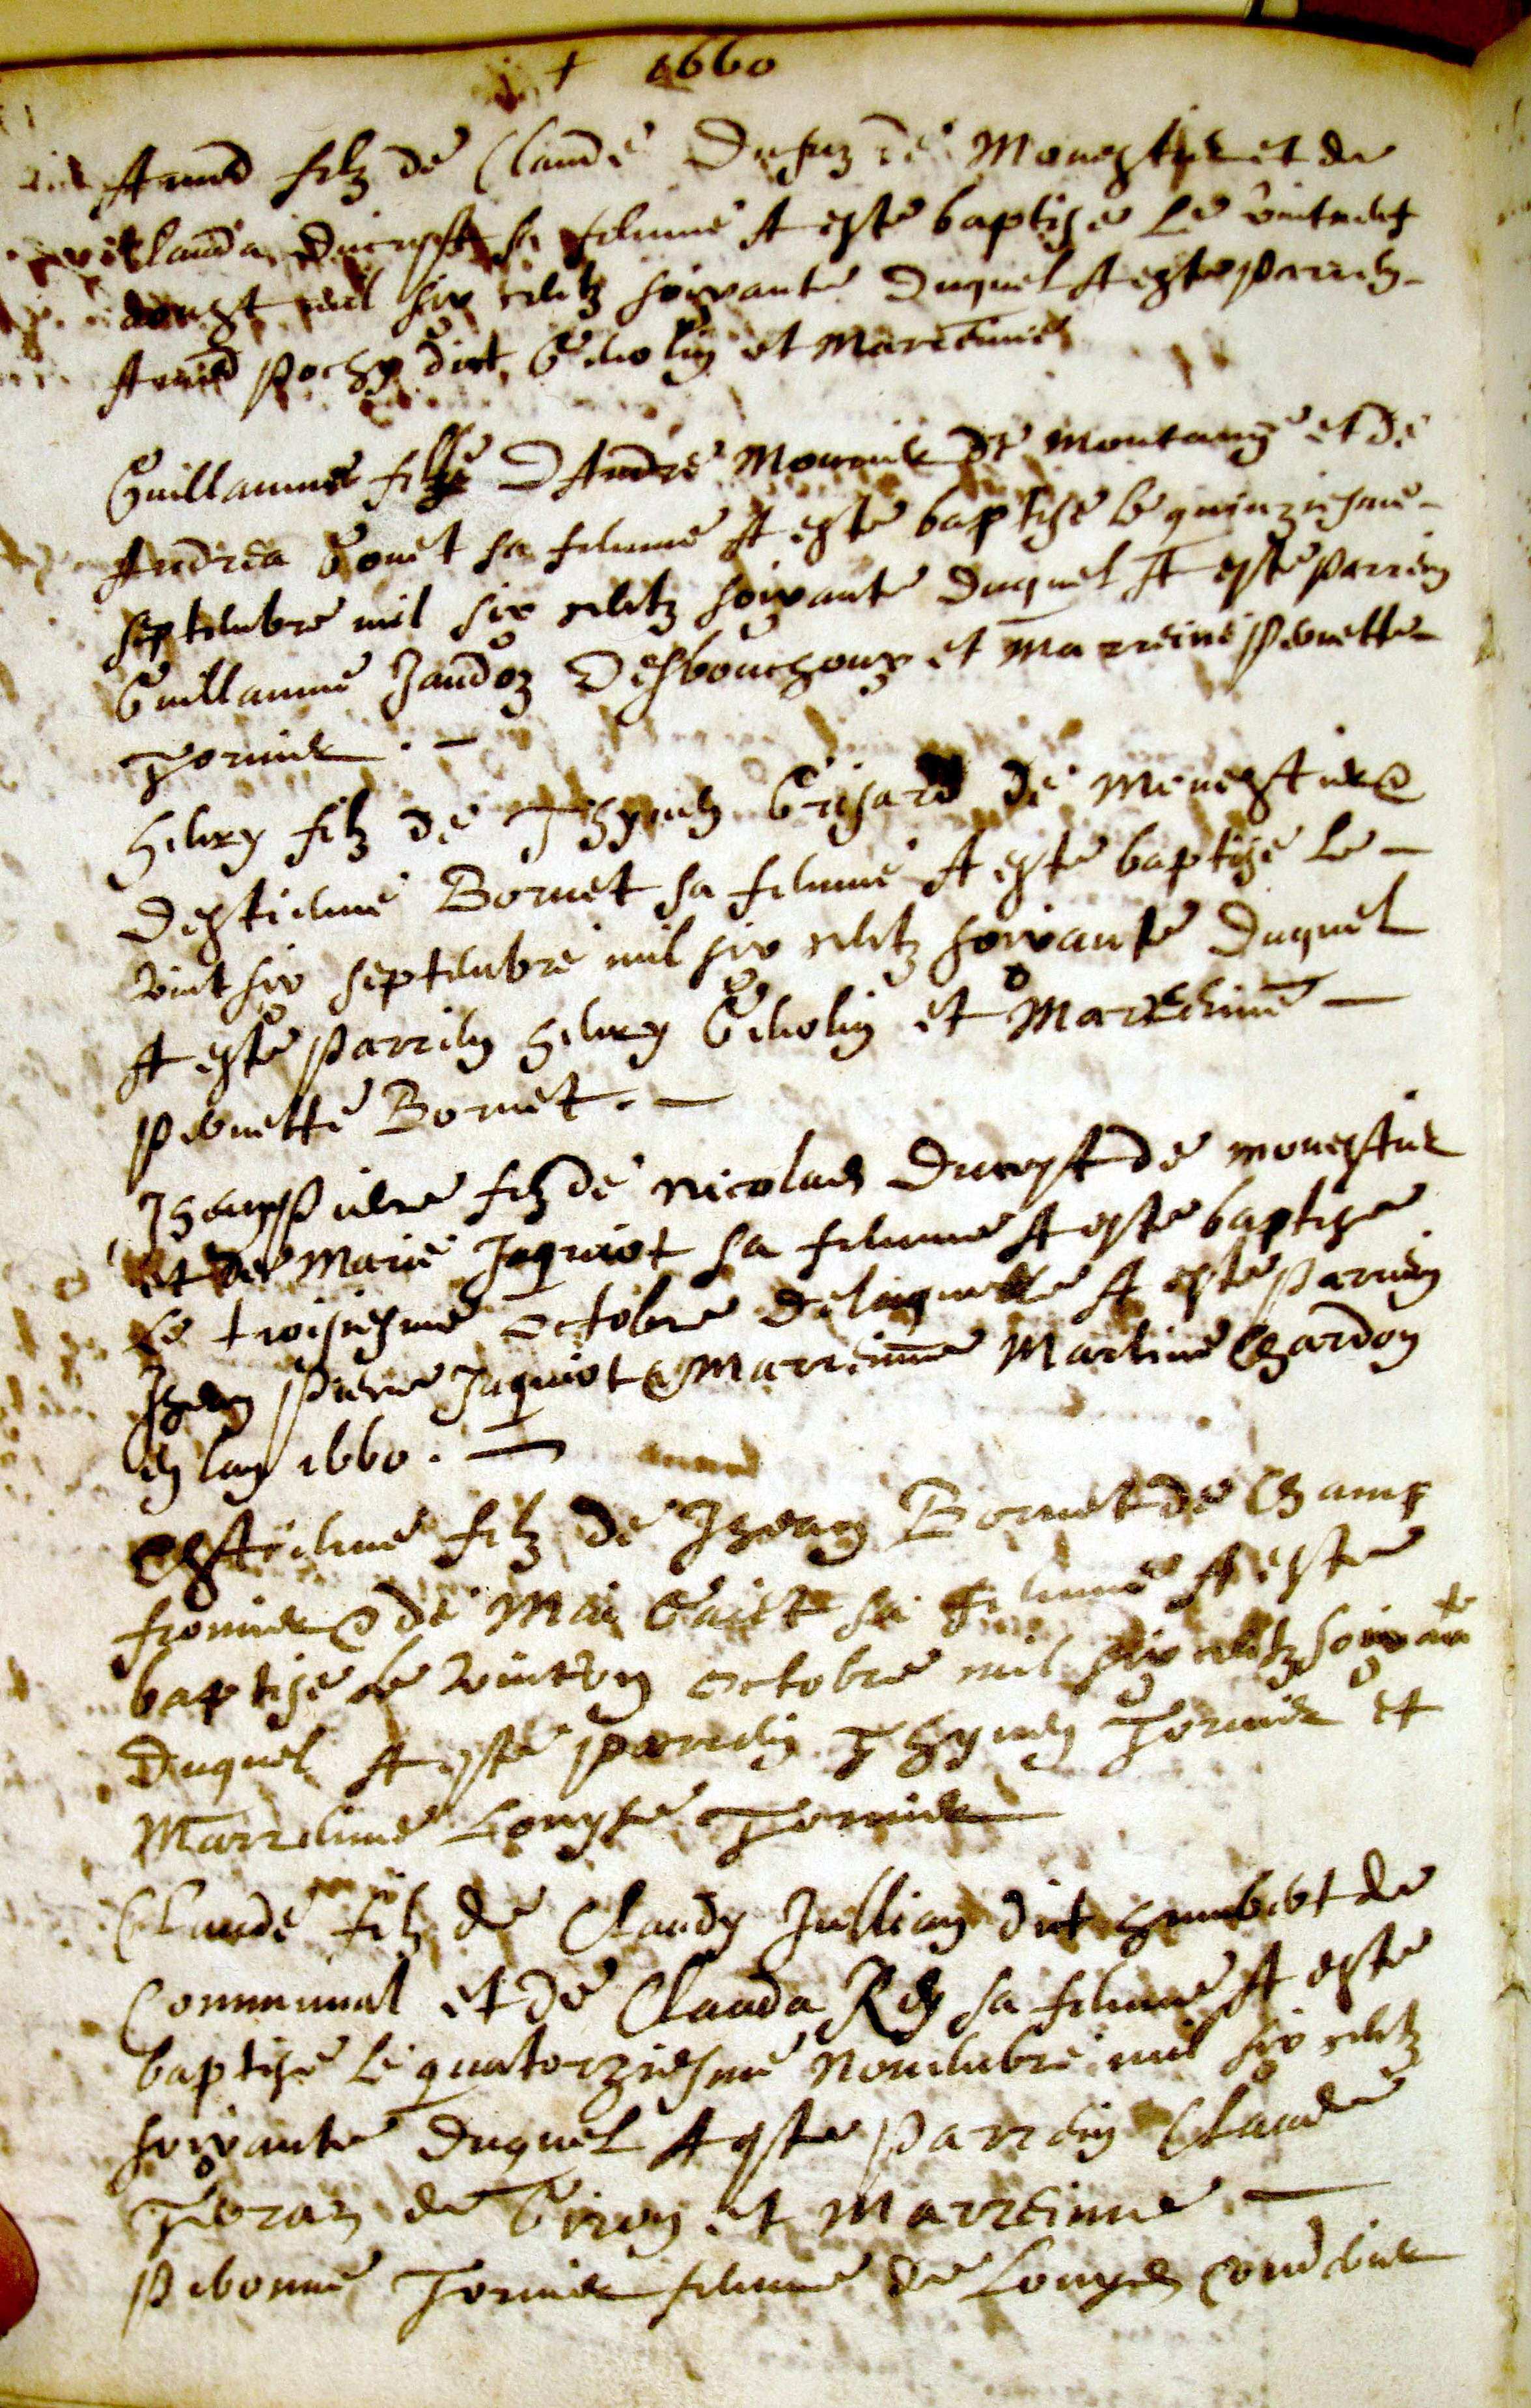 + 1660
Aimé filz de Claude de Monestier et de
Clauda Ducrest sa femme A esté baptizé le
daougst mil six centz soixante duquel A esté parrein
Aimé pochy dict Genolin et Marreinne
Guillaume filz D'André Mournier de Montany et de
Andréa Gonet sa femme A esté baptizé le quinziesme
septembre mil six centz soixante duquel A esté parrein
Guillaume Jandoz Desbouchoux et marreine pernette
Tornier . —
Henry filz de Thyven Grisard de Monestier &
Destienne Bornet sa femme A esté baptizé le —
vint six septembre mil six centz soixante duquel
A esté parrein Henry Genolin et Marreinne —
pernette Bornet . —
Jhean Pierre filz de Nicolas Ducrest de monestier
et de Marie Jaquiot sa femme A esté baptizé
le troisiesme octobre delaquelle A esté parrein
Jhean Pierre Jaquiot & Marreinne Martine Chardon
en lan 1660 . —
Esttienne filz de Jhean Bornet de Champ
fromier & de Mai Gaict sa femme A esté
baptizé le vintvn octobre mil six centz soixante
duquel A esté parrein Thyven Tornier et
Marreinne Louyse Tornier
Claude filz de Claudy Jullian dit humbert de
Communal et de Clauda Rey sa femme A esté
baptizé le quatorziesme Nouembre mil six centz
soixante duquel A esté parrein Claude
de Giron et Marreinne —
pernonne Tornier femme de Louys Coudurier